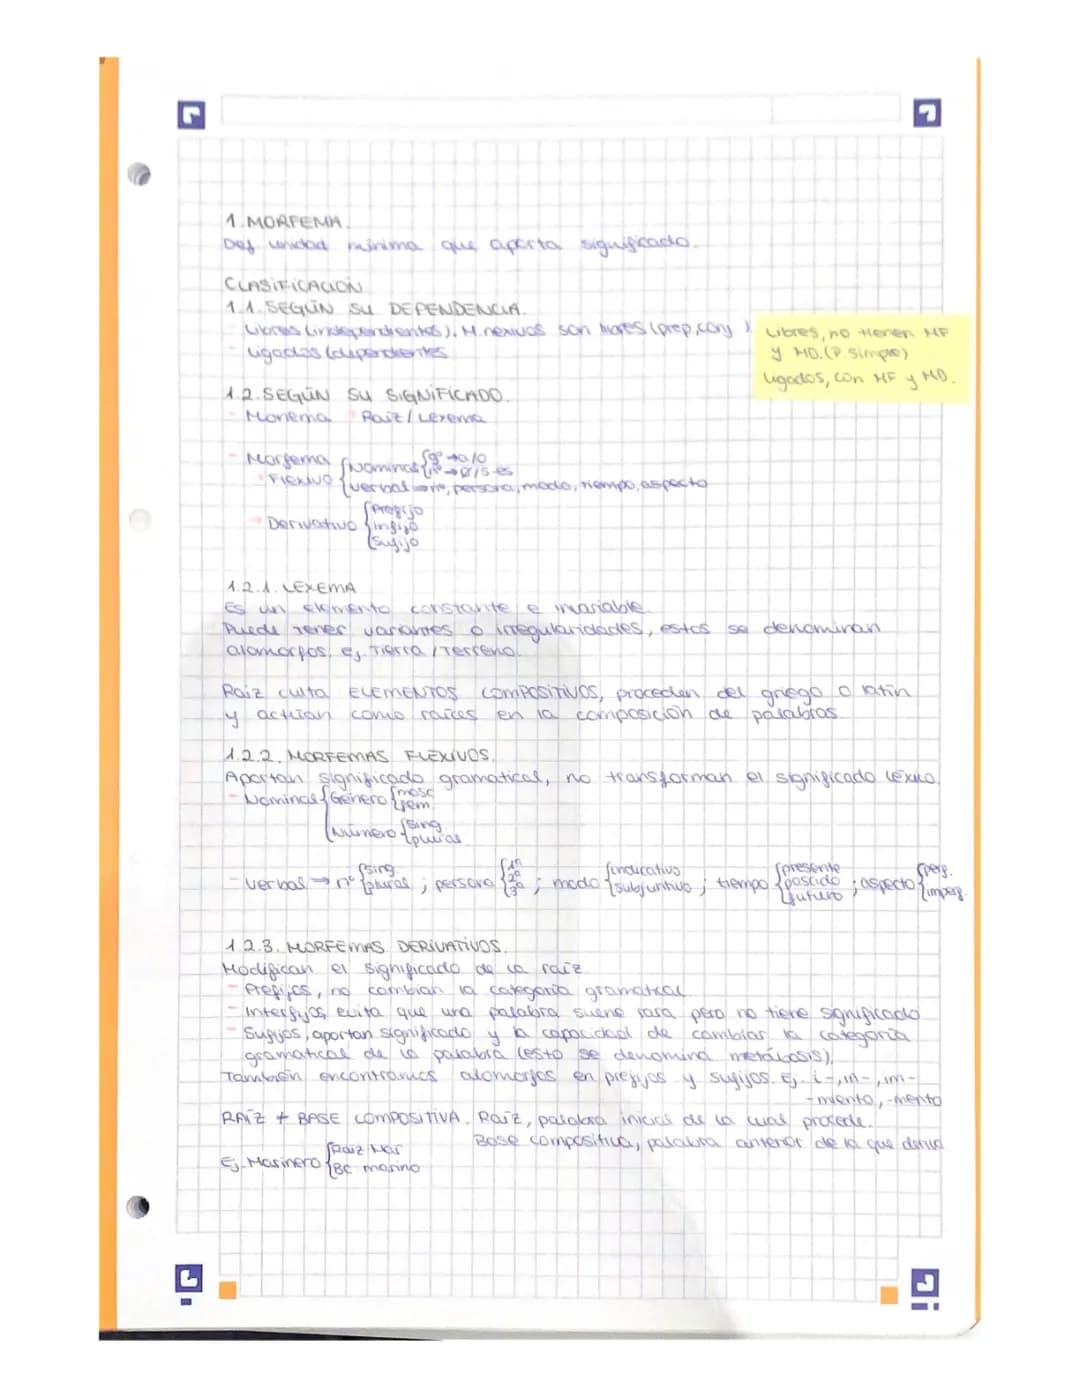 1. MORFEMA.
Def unidad mínima que aporta significado.
CLASIFICACIÓN
1.1. SEGÚN SU DEPENDENCIA.
- Libres (independientes). M. nexuos son libres (prep, conj )
- Ligados (dependientes
Libres, no tienen MF
y MD. (P. simple)
Ligados, con MF y MD.
1.2. SEGÚN SU SIGNIFICADO.
- Monema Raíz / Lexema
- Morfema
Flexivo { Nominal { gº → a/o
nº → Ø/s-es
verbal → nº, persona, modo, tiempo, aspecto
Derivativo { Prefijo
infijo
Sufijo
1.2.1. LEXEMA
Es un elemento constante e invariable.
Puede tener variantes o irregularidades, estos se denominan
alomorfos. ej. Tierra / Terreno.
Raíz culta ELEMENTOS COMPOSITIVOS, proceden del griego o latín
y actúan como raíces en la composición de palabras.
1.2.2. MORFEMAS FLEXIVOS.
Aportan significado gramatical, no transforman el significado léxico.
- Nominal { Género { masc
fem
Número { sing
plural
- verbal → nº { sing. plural ; persona { 1ª 2ª 3ª ; modo { indicativo subjuntivo ; tiempo { presente pasado futuro ; aspecto { perf. imperf.
1.2.3. MORFEMAS DERIVATIVOS.
Modifican el significado de la raíz
- Prefijos, no cambian la categoría gramatical
- Interfijos, evita que una palabra suene rara pero no tiene significado
- Sufijos, aportan significado y la capacidad de cambiar la categoría
gramatical de la palabra (esto se denomina metábasis).
También encontramos alomorfos en prefijos y sufijos. Ej. i-, in-, im-
-miento, -mento
RAÍZ + BASE COMPOSITIVA. Raíz, palabra inicial de la cual procede.
Base compositiva, palabra anterior de la que deriva
Ej. Marinero { Raíz Mar
BC marino